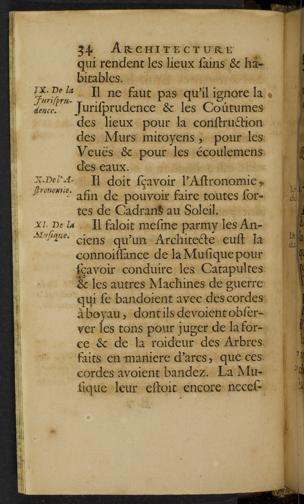 34 ARCHITECTURE
qui rendent les lieux sains & ha-
bitables.
IX. De la
Jurispru-
dence.
Il ne faut pas qu'il ignore la
Jurisprudence & les Coûtumes
des lieux pour la construction
des Murs mitoyens, pour les
Veuës & pour les écoulemens
des eaux.
X. De l'A-
stronomie.
Il doit sçavoir l'Astronomie,
afin de pouvoir faire toutes sor-
tes de Cadrans au Soleil.
XI. De la
Musique.
Il faloit mesme parmy les An-
ciens qu'un Architecte eust la
connoissance de la Musique pour
sçavoir conduire les Catapultes
& les autres Machines de guerre
qui se bandoient avec des cordes
à boyau, dont ils devoient obser-
ver les tons pour juger de la for-
ce & de la roideur des Arbres
faits en maniere d'arcs, que ces
cordes avoient bandez. La Mu-
sique leur estoit encore neces-